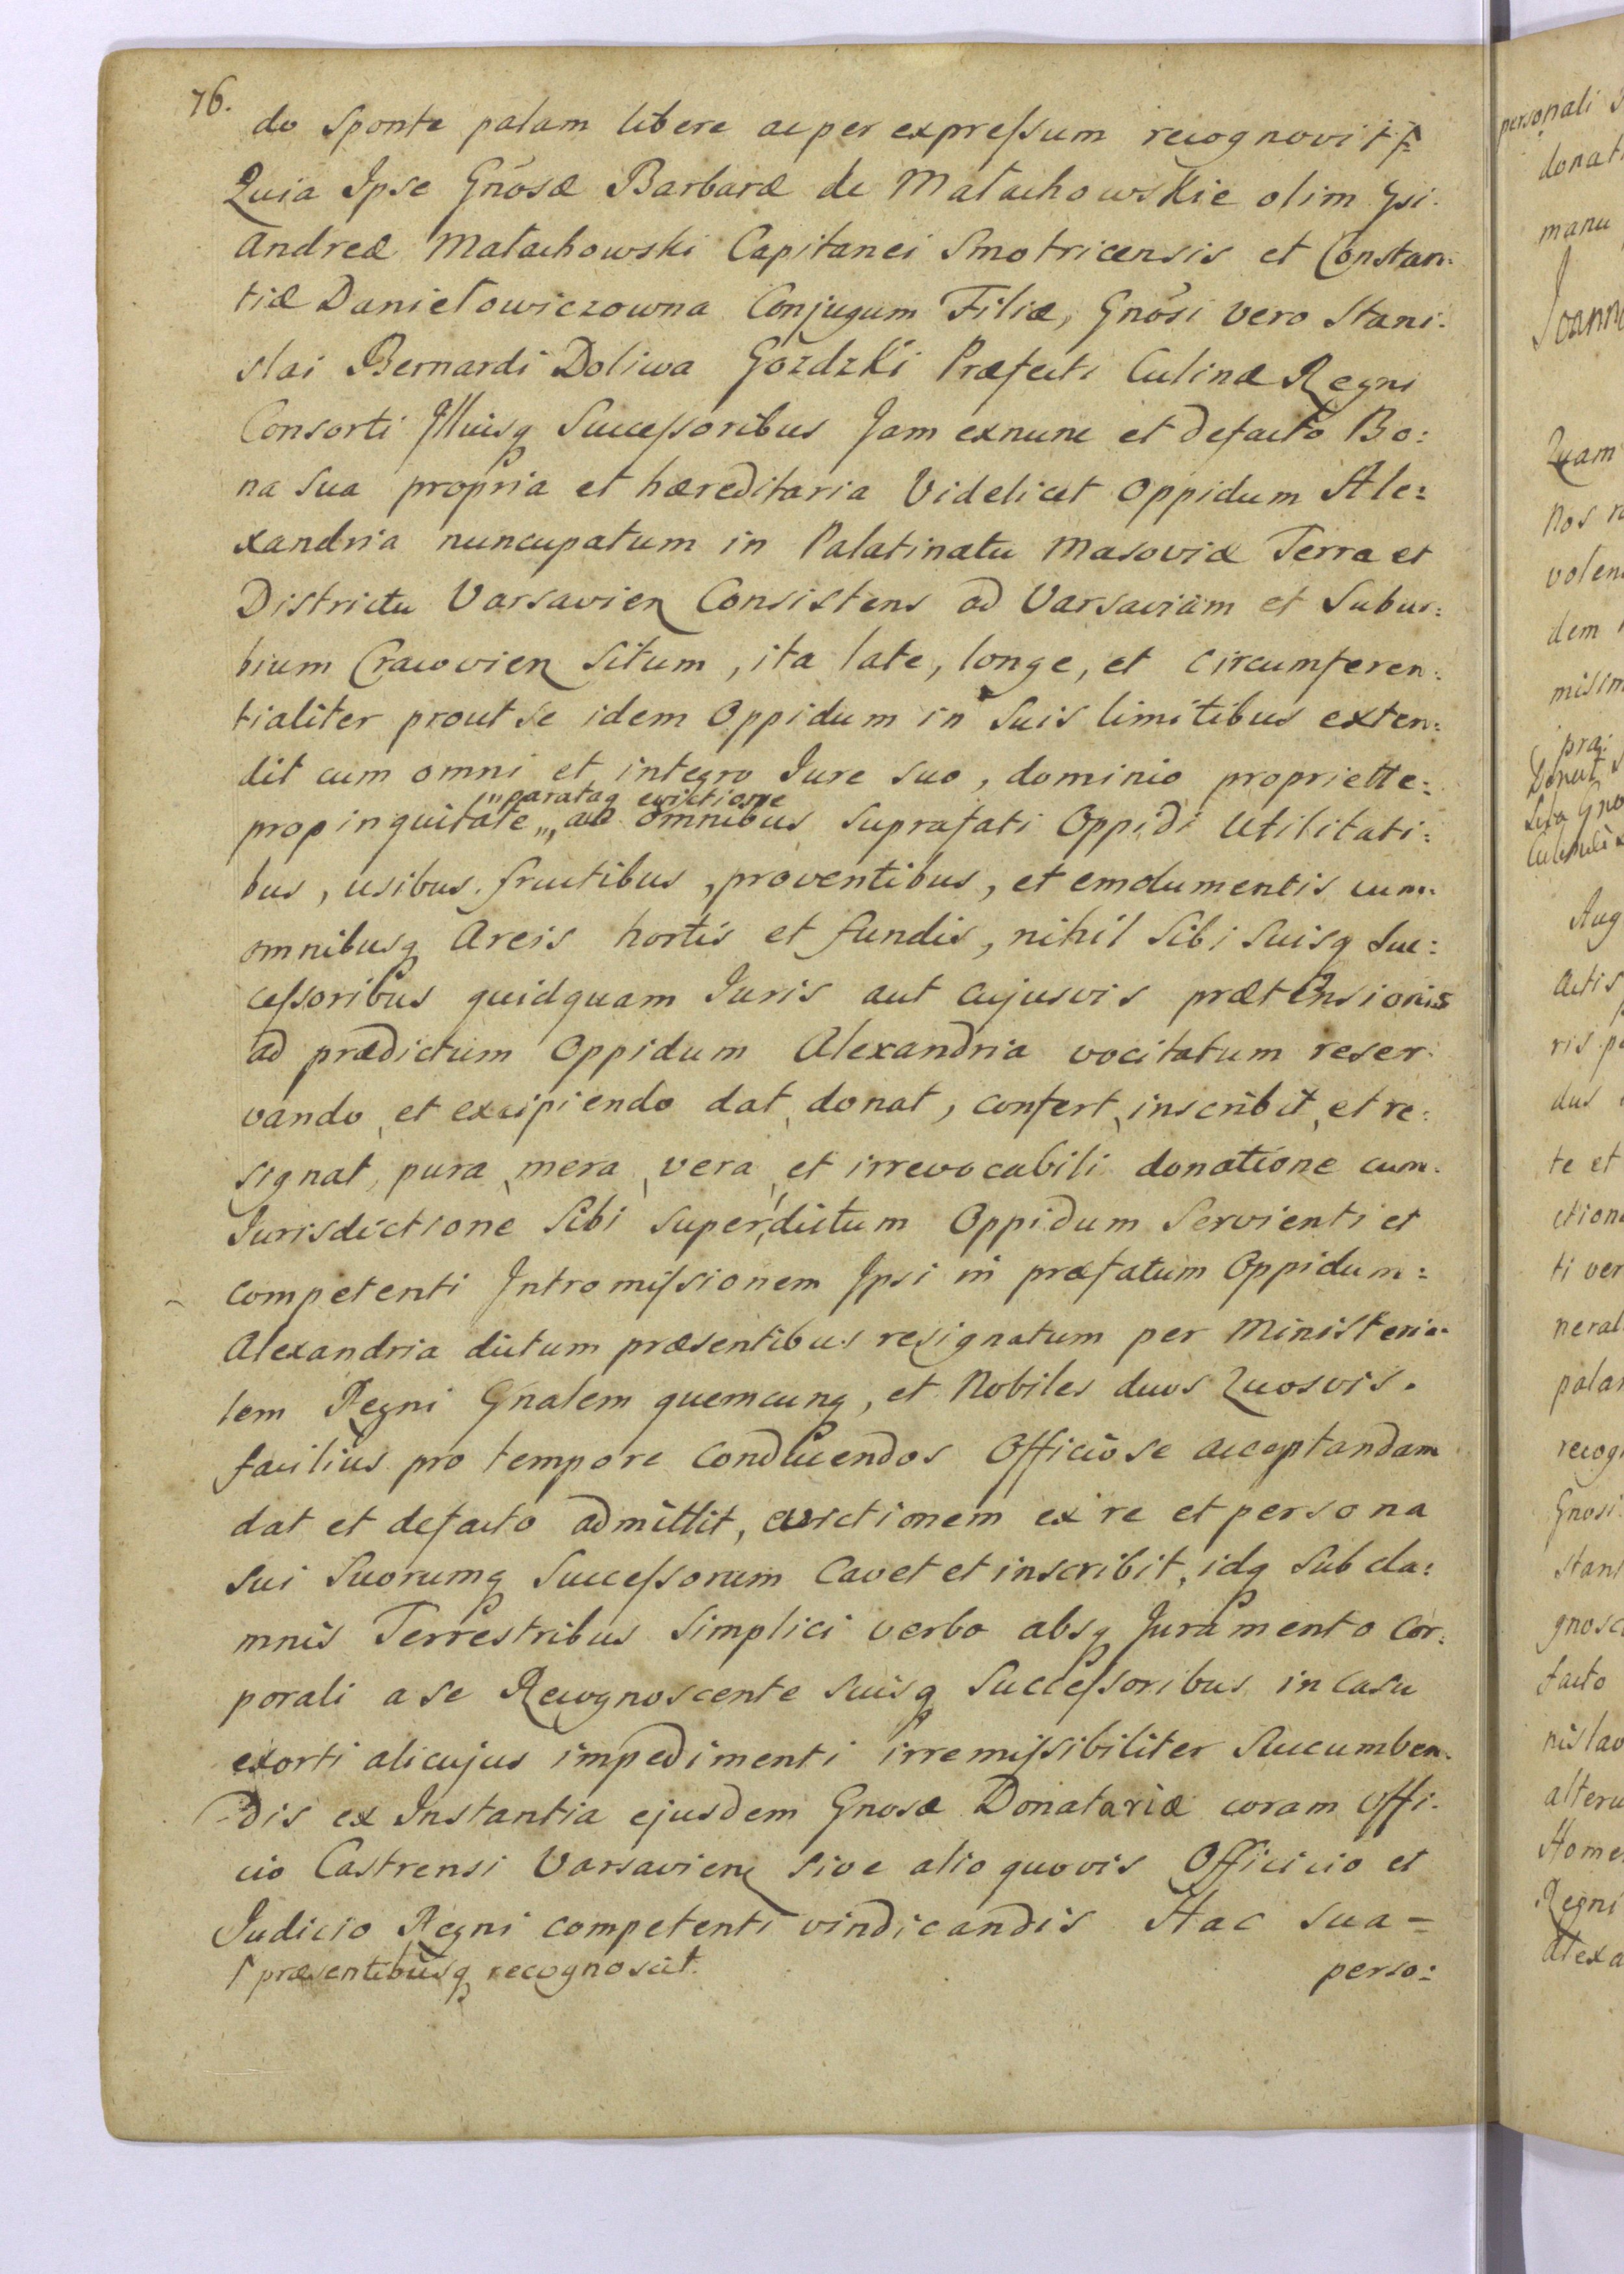 76.
do sponte palam libere ac per expreſsum recognovit
Quia Ipse Gnosæ Barbaræ de Małachowskie olim Gsi.
Andreæ Małachowski Capitanei Smotricensis et Constan:
tiæ Daniełowiczowna Conjugum Filiæ, Gnosi vero Stani:
slai Bernardi Doliwa Gozdzki Præfecti Culinæ Regni
Consorti Illiusq Succeſsoribus Jam exnunc et defacto Bo:
na sua propria et hæreditaria Videlicet Oppidum Ale:
xandria nuncupatum in Palatinatu Masoviæ Terra et
Districtu Varsavien Consistens ad Varsaviam et Subur:
bium Cracovien Situm, ita late, longe, et circumferen:
tialiter prout se idem Oppidum in Suis limitibus exten:
dit cum omni et integro Jure suo, dominio propriette:
"parataq evictione
propinquitate„ ac omnibus suprafati Oppidi Utilitati:
bus, usibus. fructibus, proventibus, et emolumentis cum:
omnibusq Areis hortis et fundis, nihil Sibi Suisq Suc:
ceſsoribus quidquam Juris aut cujusvis prætensionis
ad prædictum Oppidum Alexandria vocitatum reser:
vando, et excipiendo dat, donat, confert, inscribit, et re:
signat, pura, mera, vera, et irrevocabili donatione cum.
Jurisdictione Sibi super dictum Oppidum Servienti et
competenti Intromiſsionem Ipsi in præfatum Oppidum:
Alexandria dictum præsentibus resignatum per Ministeria:
lem Regni Gnalem quemcunq, et Nobiles duos Quosvis.
facilius pro tempore conducendos Officiose acceptandam
dat et defacto admittit, evictionem ex re et persona
sui Suorumq Succeſsorum Cavet et inscribit, idq Sub da:
mnis Terrestribus Simplici verbo absq Juramento Cor:
porali a se Recognoscente suisq Succeſsoribus in casu
exorti alicujus impedimenti irremiſsibiliter Succumben.
dis ex Instantia ejusdem Gnosæ Donatariæ coram Offi:
cio Castrensi Varsavien sive alio quovis Officicio et
Judicio Regni competenti vindicandis Hac sua=
præsentibusq recognoscit.
perso:
personali
donat
manu
Joann
Quam
Nos
volen
dem
misim
præ:
Donat
Gno
Aug
Actis
ris
dus
te et
ction
ti ver
neral
palam
recog
Gnosi
stan
gnosc
facto
nislao
alteru
Home
Regni
Alexa